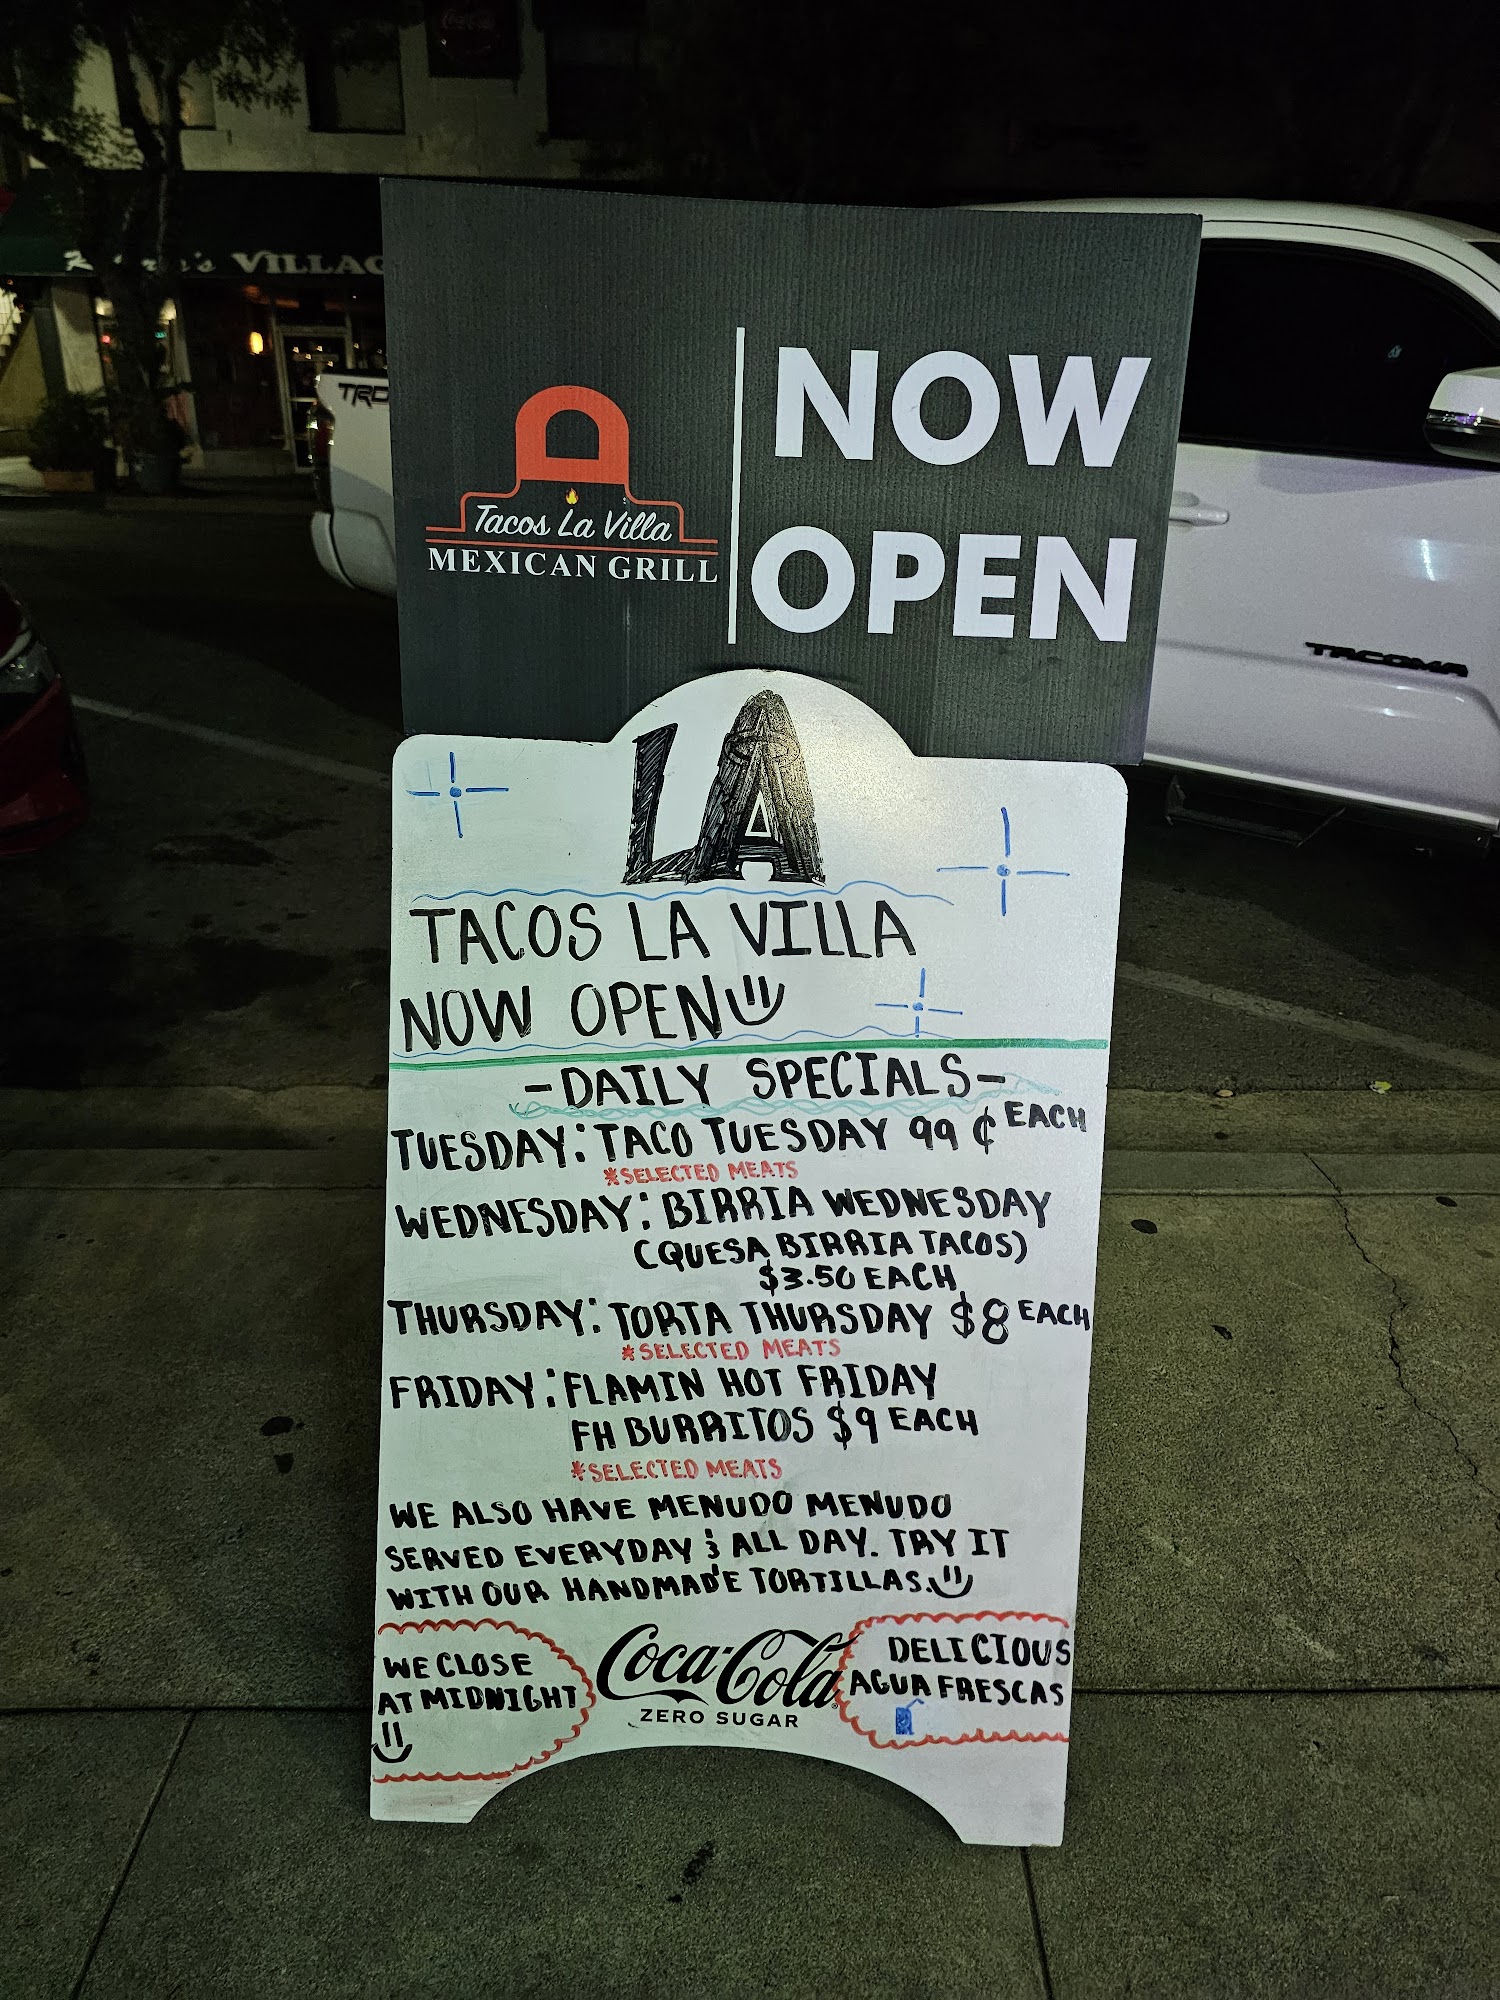 VILLAG
TRD
NOW
OPEN
Tacos La Villa
MEXICAN GRILL
TACOMA
LA
TACOS LA VILLA
NOW OPEN
-DAILY SPECIALS-
TUESDAY: TACO TUESDAY 99¢ EACH
*SELECTED MEATS
WEDNESDAY: BIRRIA WEDNESDAY
(QUESA BIRRIA TACOS)
$3.50 EACH
THURSDAY: TORTA THURSDAY $8 EACH
*SELECTED MEATS
FRIDAY: FLAMIN HOT FRIDAY
FH BURRITOS $9 EACH
*SELECTED MEATS
WE ALSO HAVE MENUDO MENUDO
SERVED EVERYDAY & ALL DAY. TRY IT
WITH OUR HANDMADE TORTILLAS.
WE CLOSE
AT MIDNIGHT
Coca-Cola
ZERO SUGAR
DELICIOUS
AGUA FRESCAS